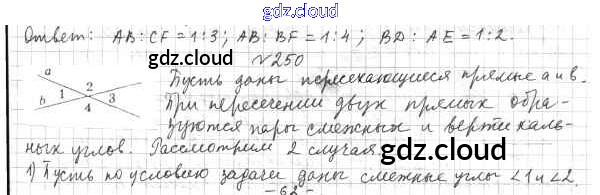 gdz.cloud
Ответ: AB:CF=1:3; AB:BF=1:4; BD:AE=1:2.
gdz.cloud
№250
a
b 1 2 3
4
Пусть даны пересекающиеся прямые a и b.
При пересечении двух прямых обра-
зуются пары смежных и вертикаль-
ных углов. Рассмотрим 2 случая
gdz.cloud
1) Пусть по условию задачи даны смежные углы ∠1 и ∠2.
-62-